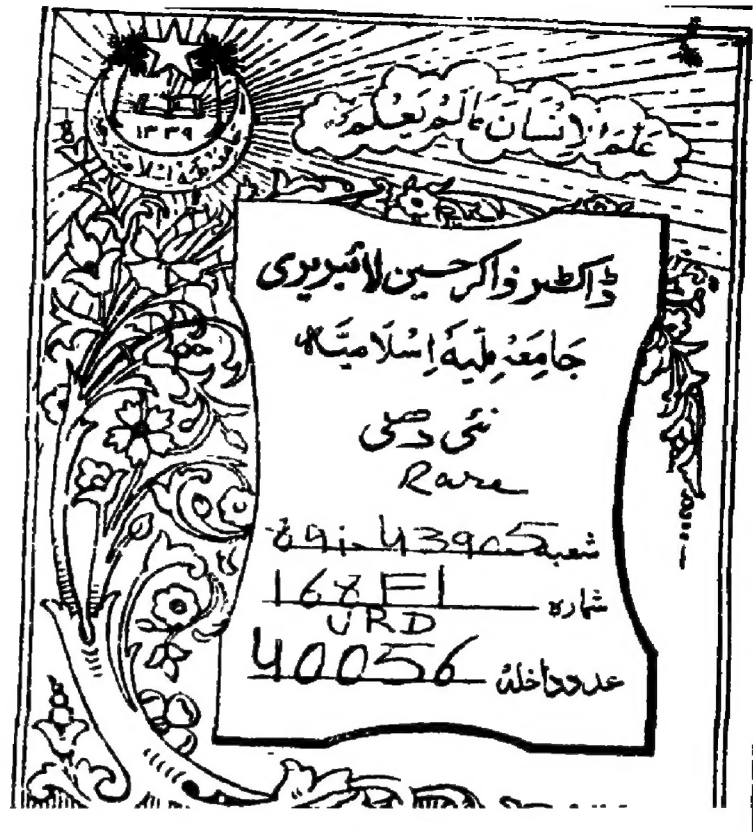 ۱۳۳۹
جامعہ ملیہ اسلامیہ
عَلَّمَ الْاِنْسَانَ مَالَمْ يَعْلَمْ
ڈاکٹر ذاکر حسین لائبریری
جَامِعَہ مِلّیہ اِسْلَامیَّہ
نئی دہلی
Rare
شعبہ 891.43905
شمارہ 168 F1
URD
عدد داخلہ 40056